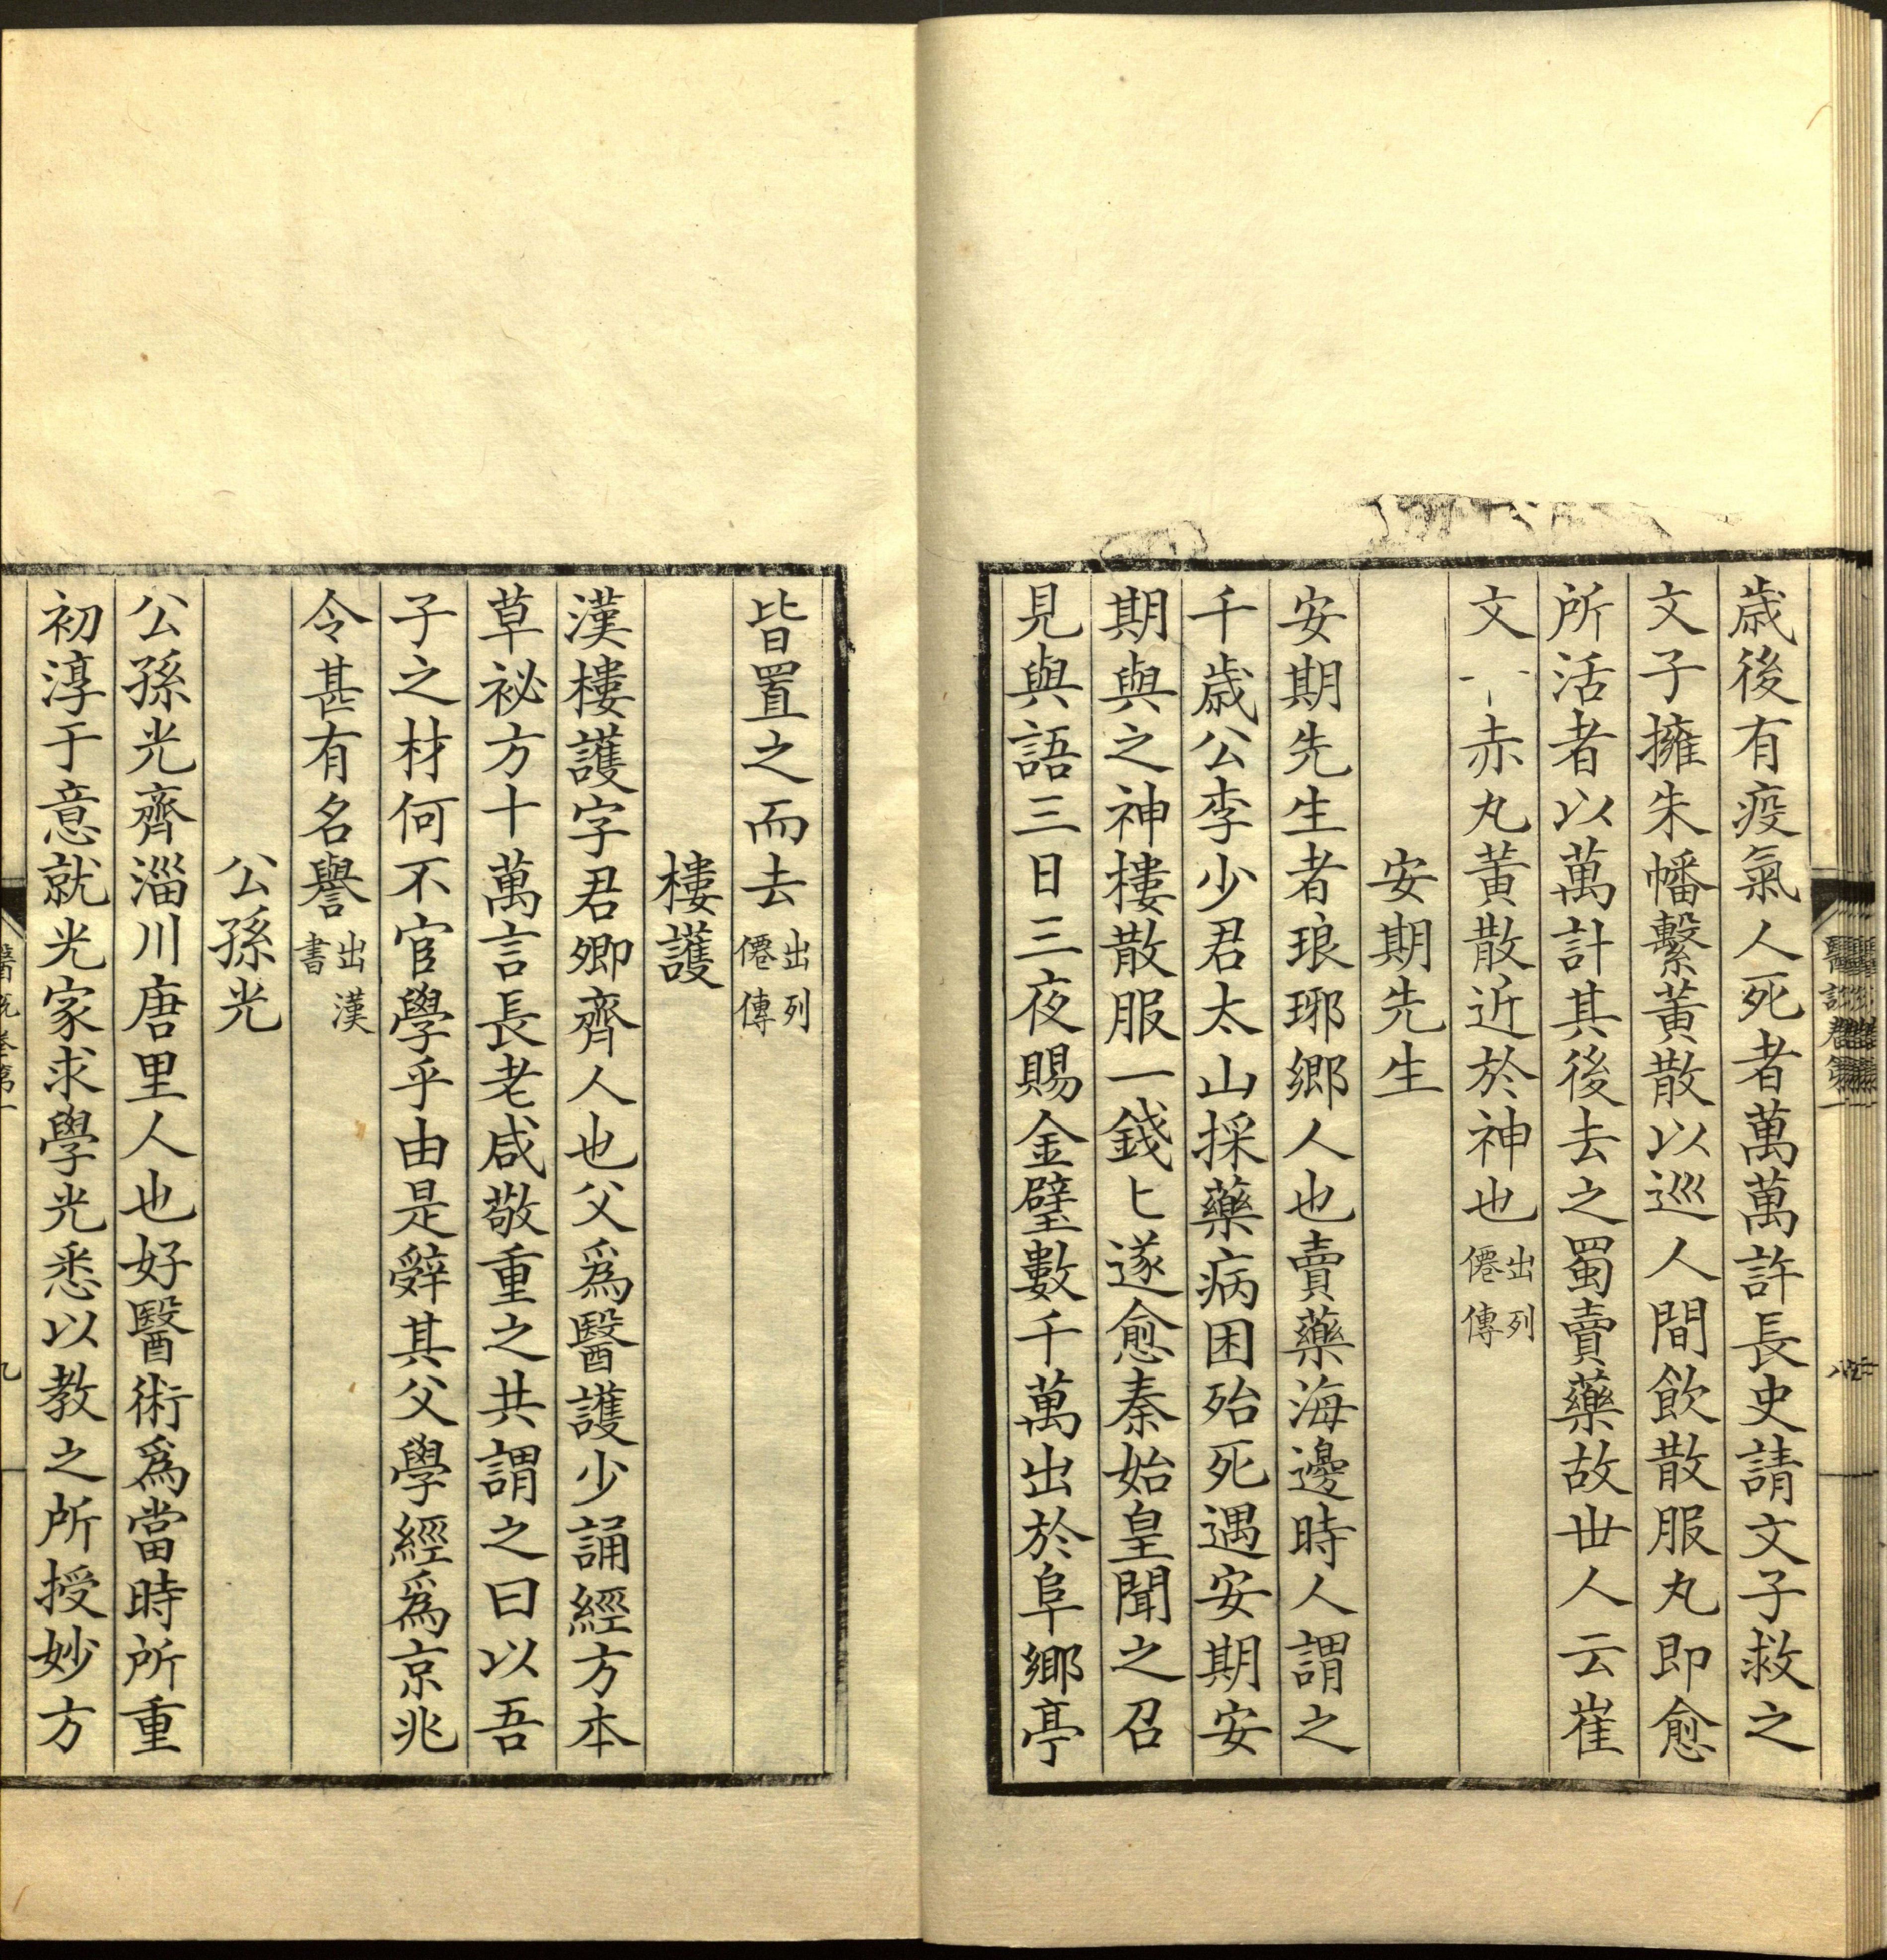 歳後有疫氣人死者萬萬許長史請文子救之
文子擁朱幡繫黃散以巡人間飲散服丸即愈
所活者以萬計其後去之蜀賣藥故世人云崔
文赤丸黃散近於神也出列僊傳
安期先生
安期先生者琅琊鄉人也賣藥海邊時人謂之
千歲公李少君太山採藥病困殆死遇安期安
期與之神樓散服一錢匕遂愈秦始皇聞之召
見與語三日三夜賜金璧數千萬出於阜鄉亭
皆置之而去出列僊傳
樓護
漢樓護字君卿齊人也父爲醫護少誦經方本
草祕方十萬言長老咸敬重之共謂之曰以吾
子之材何不官學乎由是辤其父學經爲京兆
令甚有名譽出漢書
公孫光
公孫光齊淄川唐里人也好醫術爲當時所重
初淳于意就光家求學光悉以教之所授妙方